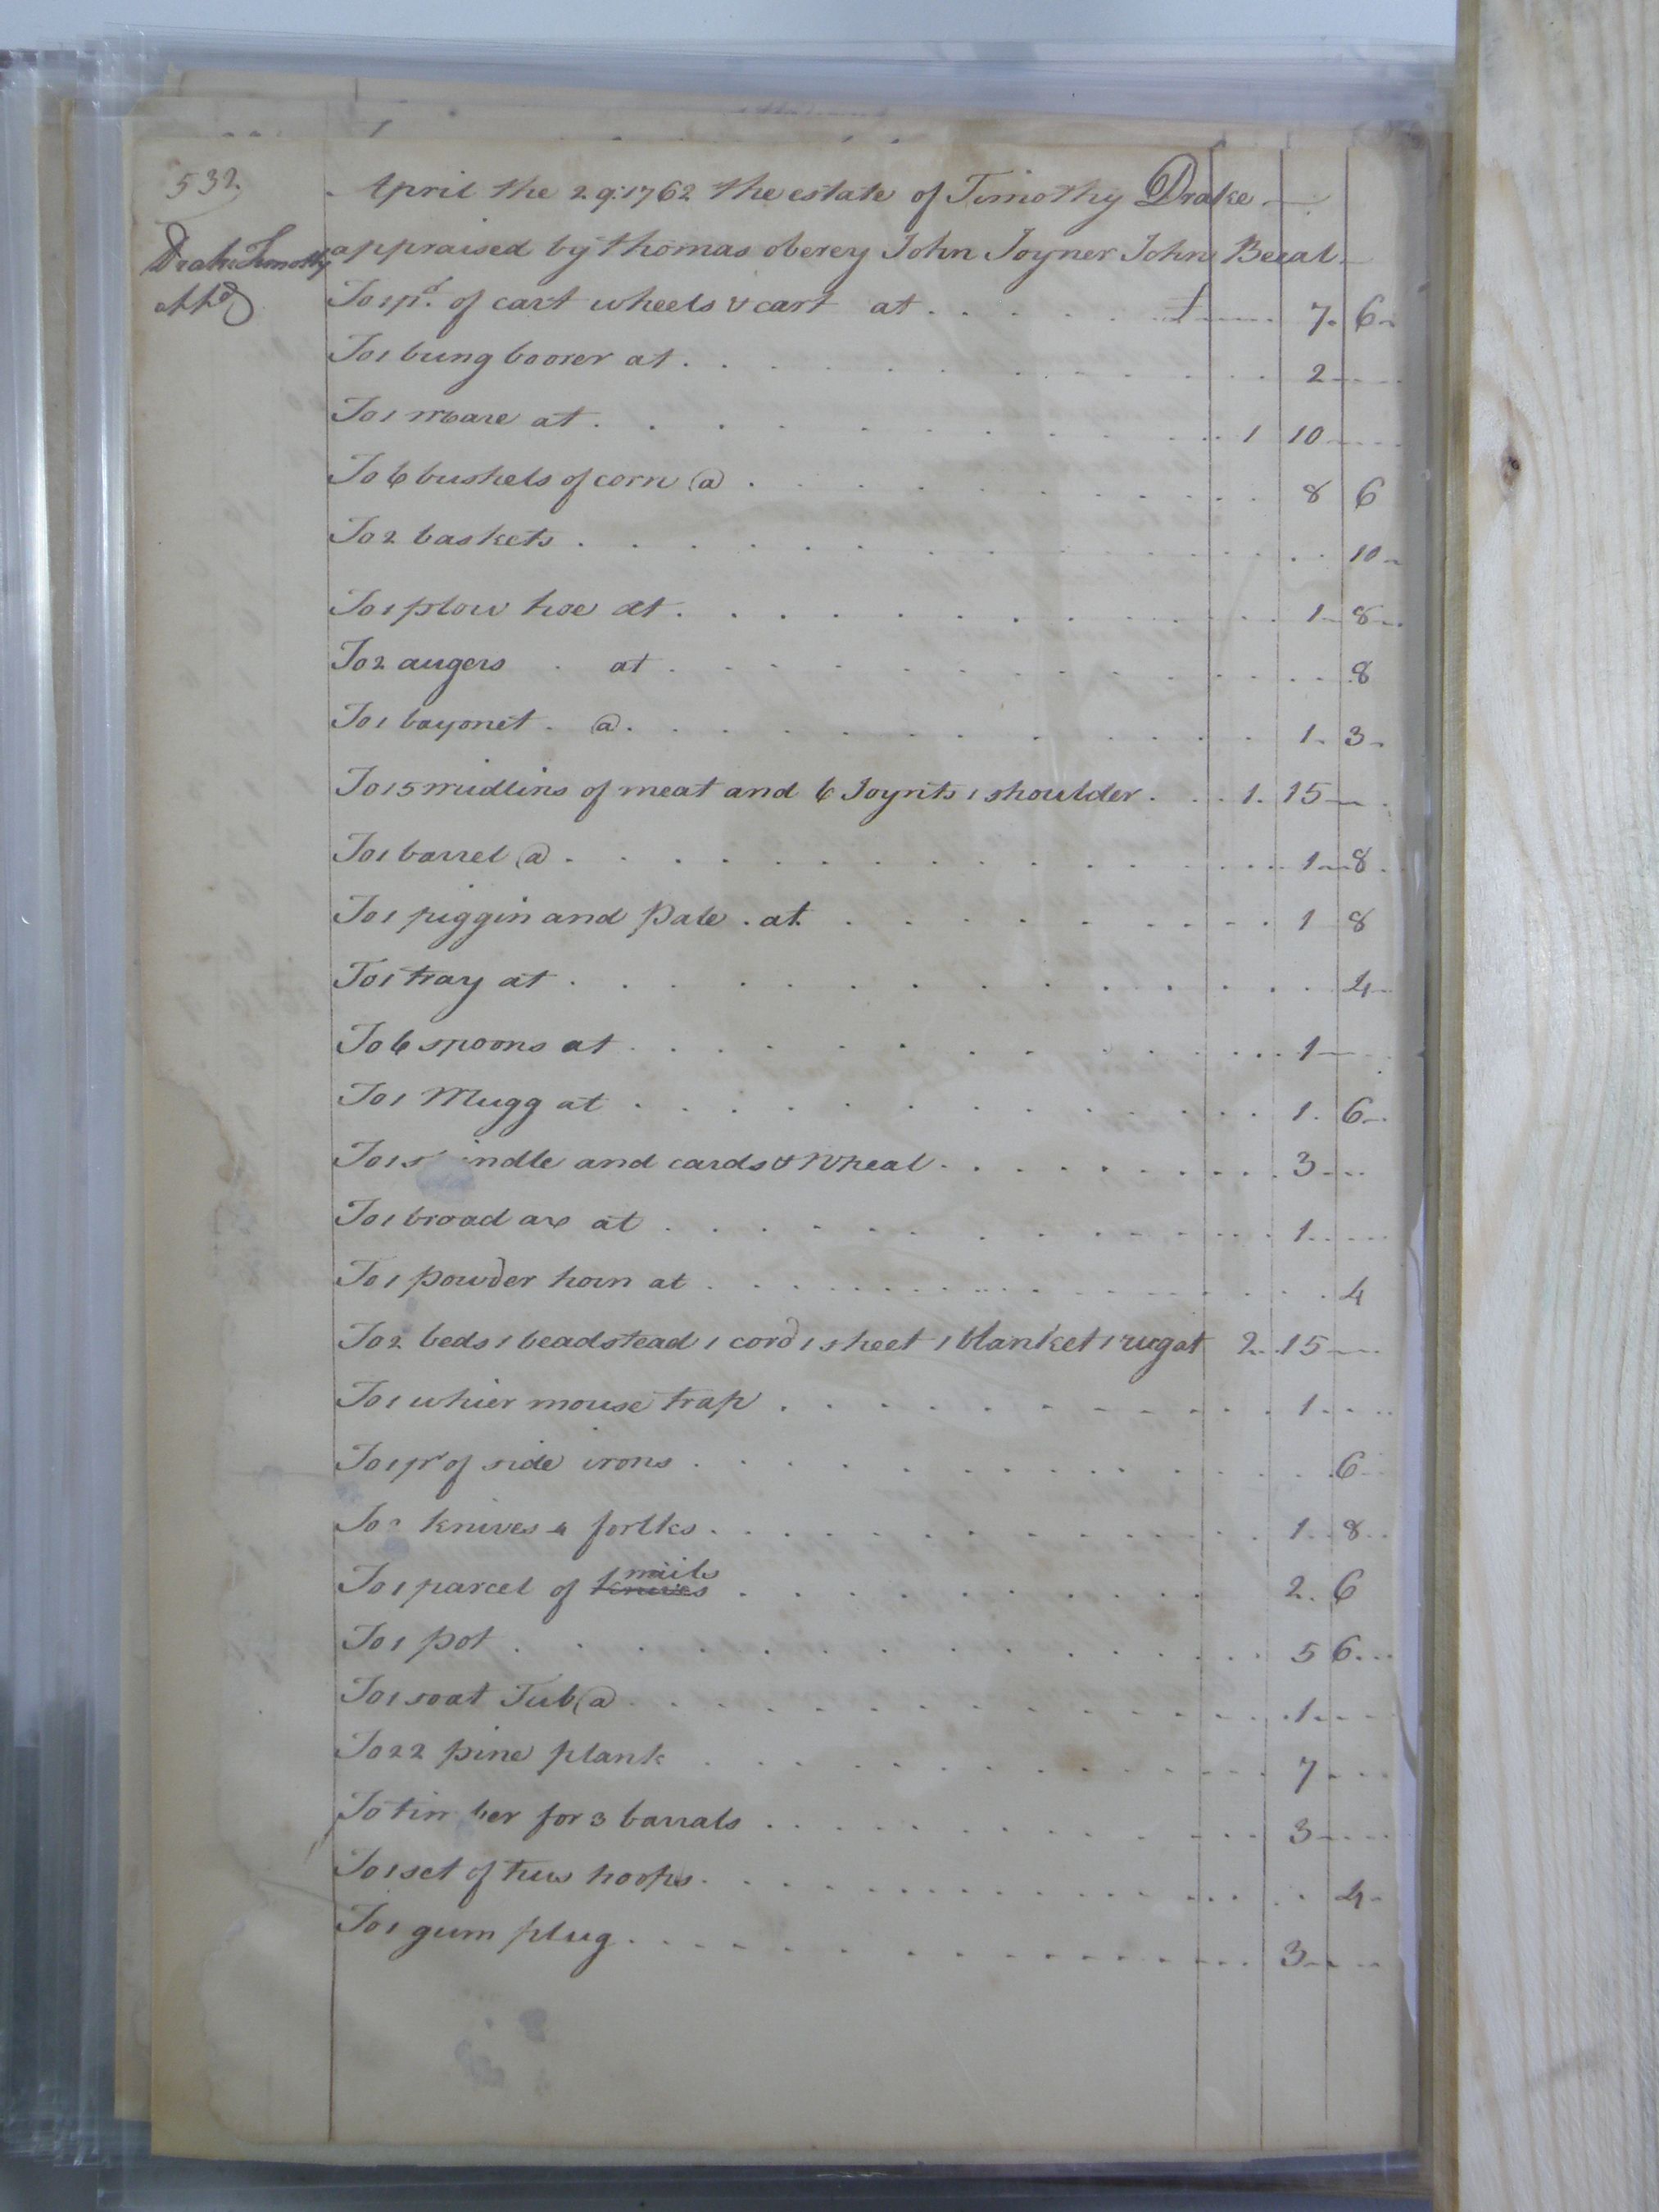 532.
April the 29. 1762 the estate of Timothy Drake
Drake Timothy
appraised by thomas oberey John Joyner John Beal
To 1 pr. of cart wheels & cart at £ 7. 6
To 1 bung boorer at 2
To 1 mare at 1 10
To 6 bushels of corn @ 8 6
To 2 baskets 10
To 1 plow hoe at 1 8
To 2 augers at 8
To 1 bayonet @ 1. 3
To 15 midlins of meat and 6 Joynts 1 shoulder 1. 15
To 1 barrel @ 1 8
To 1 piggin and Pale at 1 8
To 1 tray at 4
To 6 spoons at 1
To 1 Mugg at 1. 6
To 1 s indle and cards & Wheal 3
To 1 broad ax at 1
To 1 powder horn at 4
To 2 beds 1 beadstead 1 cord 1 sheet 1 blanket 1 rug at 2. 15
To 1 whier mouse trap 1
To 1 pr of side irons 6
To knives & forlks 1 8
To 1 parcel of 2. 6
To 1 pot 5 6
To 1 soat Tub @ 1
To 22 pine plank 7
To tim ber for 3 barrals 3
To 1 set of trus hoops 4
To 1 gum plug 3